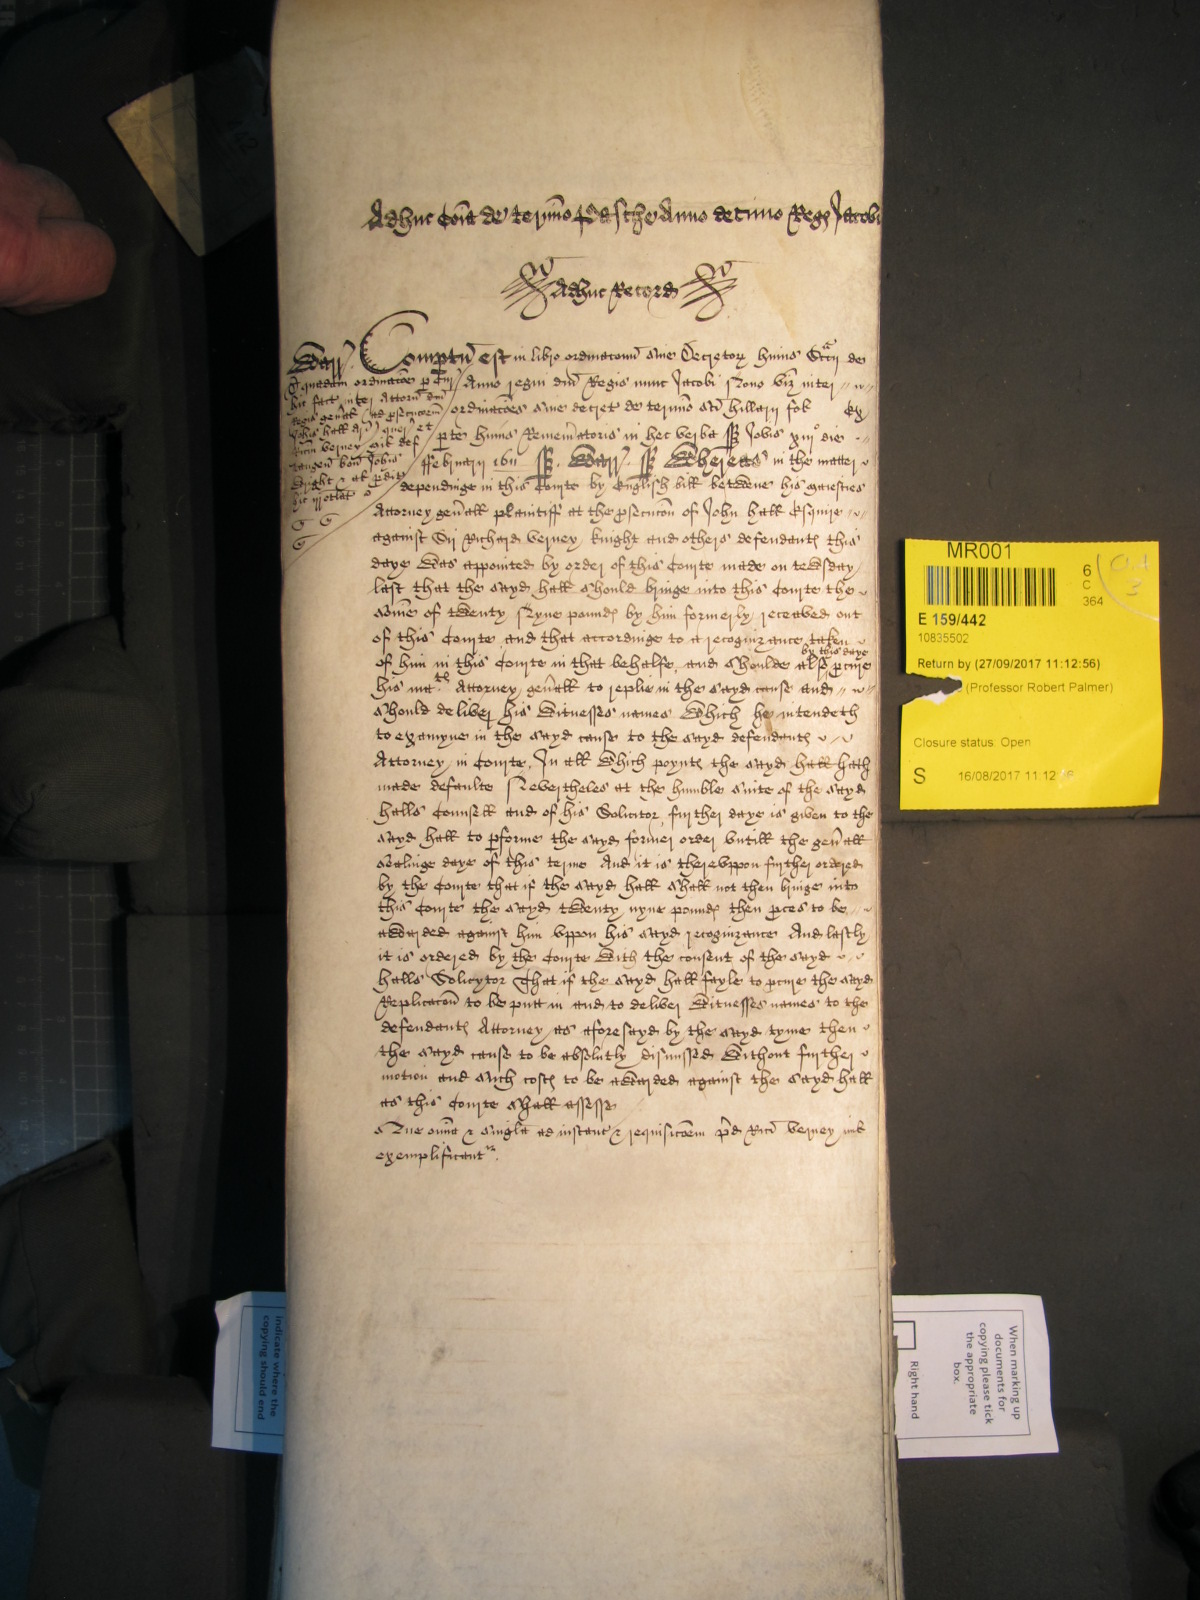 Adhuc Coĩa de termĩo Pasche Anno decimo Regꝭ Jacobi
Adhuc Record
Warr
Compũt est in libro ordinaconũ sive Decretorꝝ huius Scc̃ii de
Anno regni dñi Regis nunc Jacobi Nono viz inter
ordinac̃oes sive decret de termĩo sc̃i Hillarii fol
ꝑte huius Remem̃atoris in hec verba ss Jovis xiiiº die
ffebruarii 1611 ss. Warr. ss Whereas in the matter
dependinge in this Courte by English bill betwene his maiesties
Attorney gen̄all plaintiff at the ꝓsecuc̃on of John Hall Esquire
against Sir Richard Verney knight and others defendantꝭ this
daye was appointed by order of this Courte made on tewsday
last that the sayd Hall should bringe into this Courte the
som̃e of twenty Nyne poundꝭ by him formerly receaved out
of this Courte and that accordinge to a recognizance taken
by this daye
of him in this Courte in that behalfe, and shoulde alsoe ꝓcure
his maᵗⁱᵉˢ Attorney gen̄all to replie in the sayd cause and
should deliver his Witnesses names which he intendeth
to examyne in the sayd cause to the sayd defendantꝭ
Attorney in Courte, In all which poyntꝭ the sayd Hall hath
made defaulte Nevertheles at the humble suite of the sayd
Halls Counsell and of his Solicitor further daye is given to the
sayd Hall to ꝑforme the sayd former order untill the gen̄all
sealinge daye of this terme And it is thereuppon further ordered
by the Courte that if the sayd Hall shall not then bringe into
this Courte the sayd twenty nyne poundꝭ then ꝓces to be
awarded against him uppon his sayd recognizance And lastly
it is ordered by the Courte with the consent of the sayd
Halls Solicytor That if the sayd Hall fayle to ꝓcure the sayd
Replicac̃on to be putt in and to deliver Witnesses names to the
defendantꝭ Attorney as aforesayd by the sayd tyme then
the sayd cause to be absolutly dismissed without further
motion and such costꝭ to be awarded against the sayd Hall
as this Courte shall assesse
Que om̃ia & singl̃a ad instanc̃ & requisic̃oem p̃d Ric̃i Verney mil̃
exemplificantʳ.
MR001
6
C
364
E 159/442
10835502
Return by (27/09/2017 11:12:56)
(Professor Robert Palmer)
Closure status: Open
S 16/08/2017 11:12
indicate where the
copying should end
When marking up
documents for
copying please tick
the appropriate
box.
Right hand